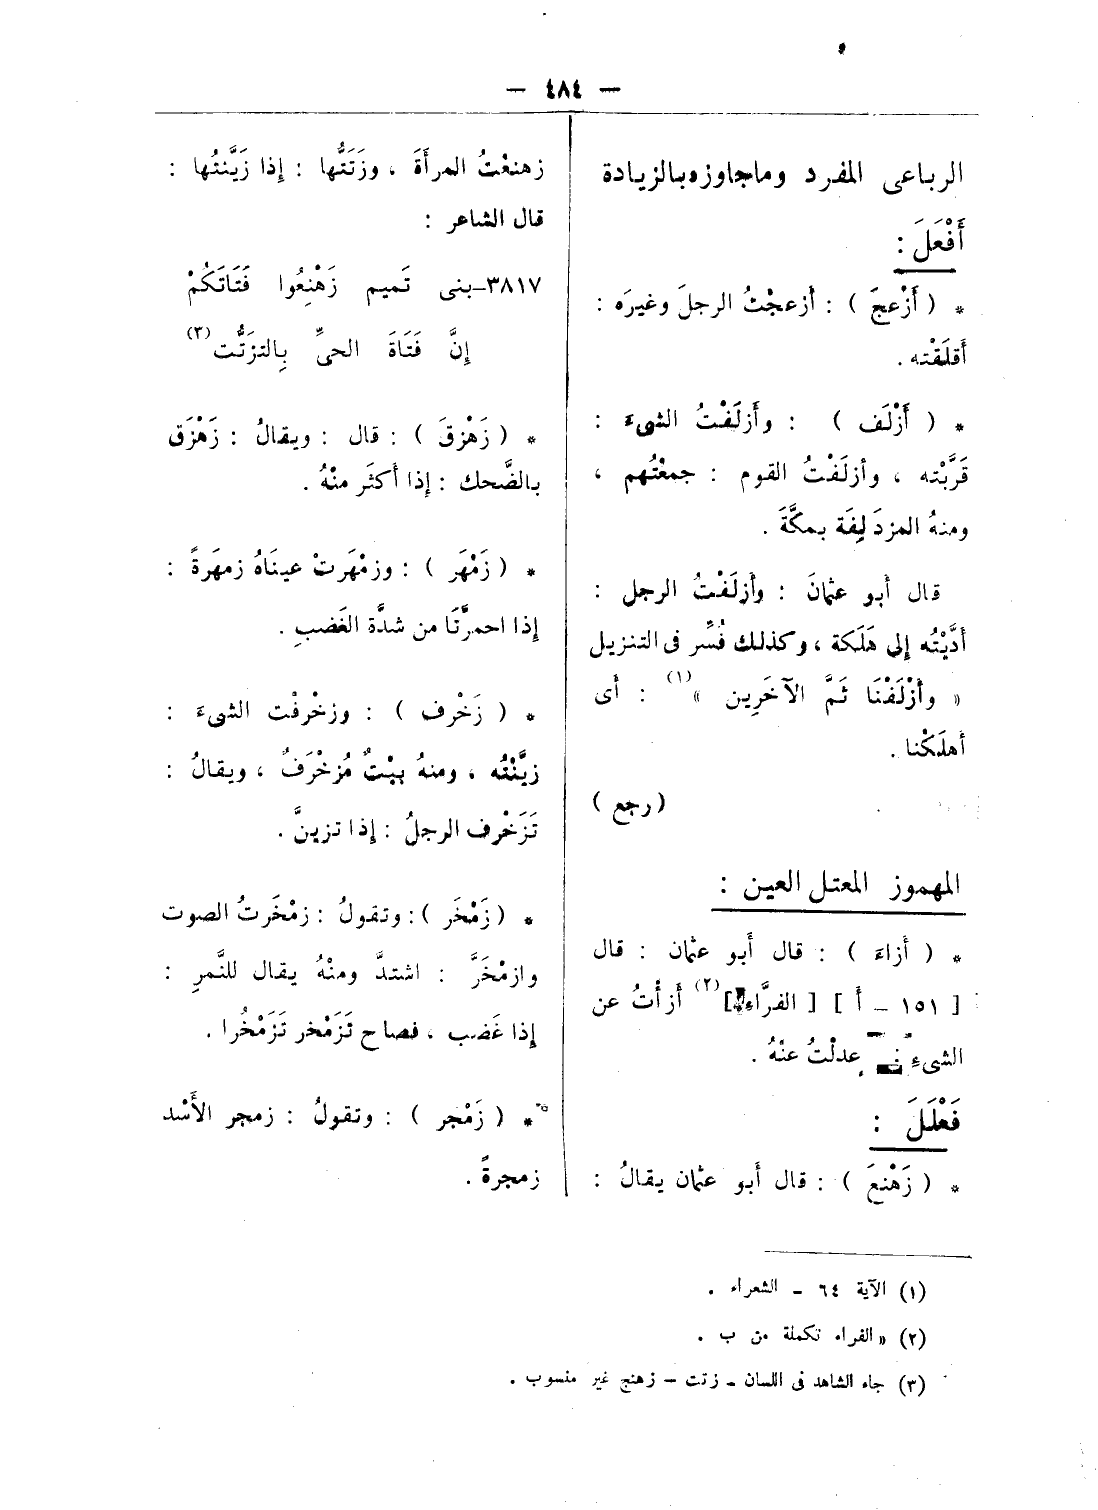 — ٤٨٤ —
الرباعى المفرد وماجاوزه بالزيادة
أَفْعَلَ :
* ( أَزْعجَ ) : أزعجْتُ الرجلَ وغيرَه :
أقلَقْته .
* ( أَزْلَف ) : وأَزلَفْتُ الشىءَ :
قَرَّبْته ، وأزلَفْتُ القوم : جمعْتُهم ،
ومنهُ المزدَلِفَة بمكَّةَ .
قال أبو عثمانَ : وأزلَفْتُ الرجل :
أدَّيْتُه إلى هَلَكة ، وكذلك فُسِّر فى التنزيل
« وأزْلَفْنَا ثَمَّ الآخَرِين »(١) : أى
أهلَكْنا .
( رجع )
المهموز المعتل العين :
* ( أزاءَ ) : قال أبو عثمان : قال
[ ١٥١ – أ ] [ الفرَّاء ](٢) أزأْتُ عن
الشىءِ عدلْتُ عنْهُ .
فَعْلَلَ :
* ( زَهْنعَ ) : قال أبو عثمان يقالُ :
زهنعْتُ المرأةَ ، وزَتَتُّها : إذا زَيَّنتُها :
قال الشاعر :
٣٨١٧–بنى تَميم زَهْنِعُوا فَتَاتَكُمْ
إنَّ فَتَاةَ الحىِّ بِالتزَتُّت(٣)
* ( زَهْزقَ ) : قال : ويقالُ : زَهْزَق
بالضَّحك : إذا أكثَر منْهُ .
* ( زَمْهَر ) : وزمْهَرتْ عينَاهُ زمهَرةً :
إذا احمرَّتَا من شدَّة الغَضبِ .
* ( زَخْرف ) : وزخْرفْت الشىءَ :
زيَّنْتُه ، ومنهُ بيْتٌ مُزخْرَفٌ ، ويقالُ :
تَزَخْرف الرجلُ : إذا تزينَّ .
* ( زَمْخَر ) : وتقولُ : زمْخَرتُ الصوت
وازمْخَرَّ : اشتدَّ ومنْهُ يقال للنَّمرِ :
إذا غَضب ، فصاح تَزَمْخر تَزَمْخُرا .
* ( زَمْجر ) : وتقولُ : زمجر الأَسْد
زمجرةً .
(١) الآية ٦٤ – الشعراء .
(٢) «الفراء تكملة من ب .
(٣) جاء الشاهد فى اللسان – زتت – زهنج غير منسوب .